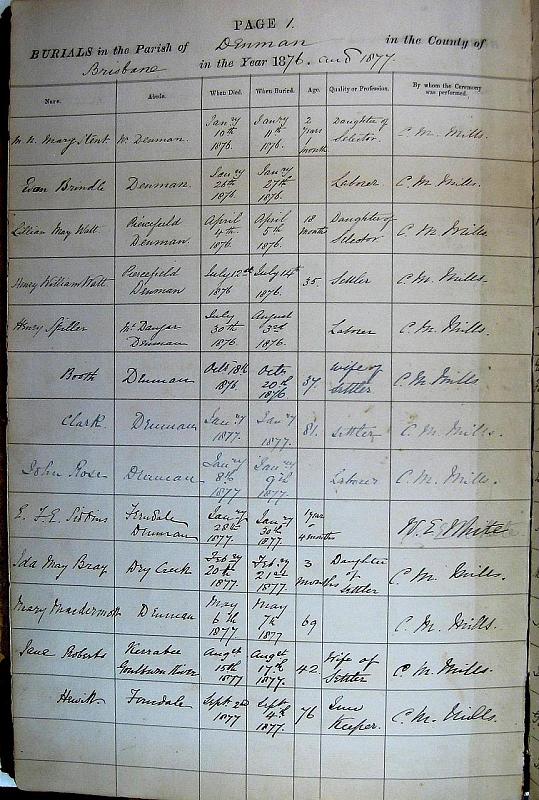 PAGE 1.
BURIALS in the Parish of Denman in the County of
Brisbane in the Year 1876. and 1877
Name. Abode. When Died. When Buried. Age. Quality or Profession. By whom the Ceremony was performed.
Mary Stent Denman. Jany 10th 1876. Jany 11th 1876. 2 years month Daughter of Selector. C. M. Mills.
Evan Brindle Denman. Jany 26th 1876. Jany 27th 1876. Laborer C. M. Mills.
Lillian May Watt Piercefield Denman. April 4th 1876. April 5th 1876. 18 months Daughter of Selector C. M. Mills
Henry William Watt Piercefield Denman July 12th 1876 July 14th 1876. 35. Settler C. M. Mills.
Henry Spiller Mt Dangar Denman July 30th 1876. August 3rd 1876. Laborer C. M. Mills.
Booth Denman Octr 18th 1876. Octr 20th 1876 37. Wife of Settler C. M. Mills.
Clark. Denman Jany 1877. Jany 1877. 81. Settler C. M. Mills.
John Rose Denman Jany 8th 1877 Jany 9th 1877 Laborer C. M. Mills.
E. F. E. Ferndale Denman Jany 28th 1877. Jany 30th 1877. 1 year 4 months W. E. White
Ida May Bray Dry Creek Feby 20th 1877. Feby 21st 1877. 3 months Daughter of Settler C. M. Mills.
Mary Macdermott Denman May 6th 1877 May 7th 1877 69 C. M. Mills.
Jane Roberts Kerrabee Goulburn River Augst 15th 1877 Augst 17th 1877. 42. Wife of Settler C. M. Mills.
Hewitt Ferndale Sept. 2nd 1877 Sept. 4th 1877. 76 Inn Keeper. C. M. Mills.